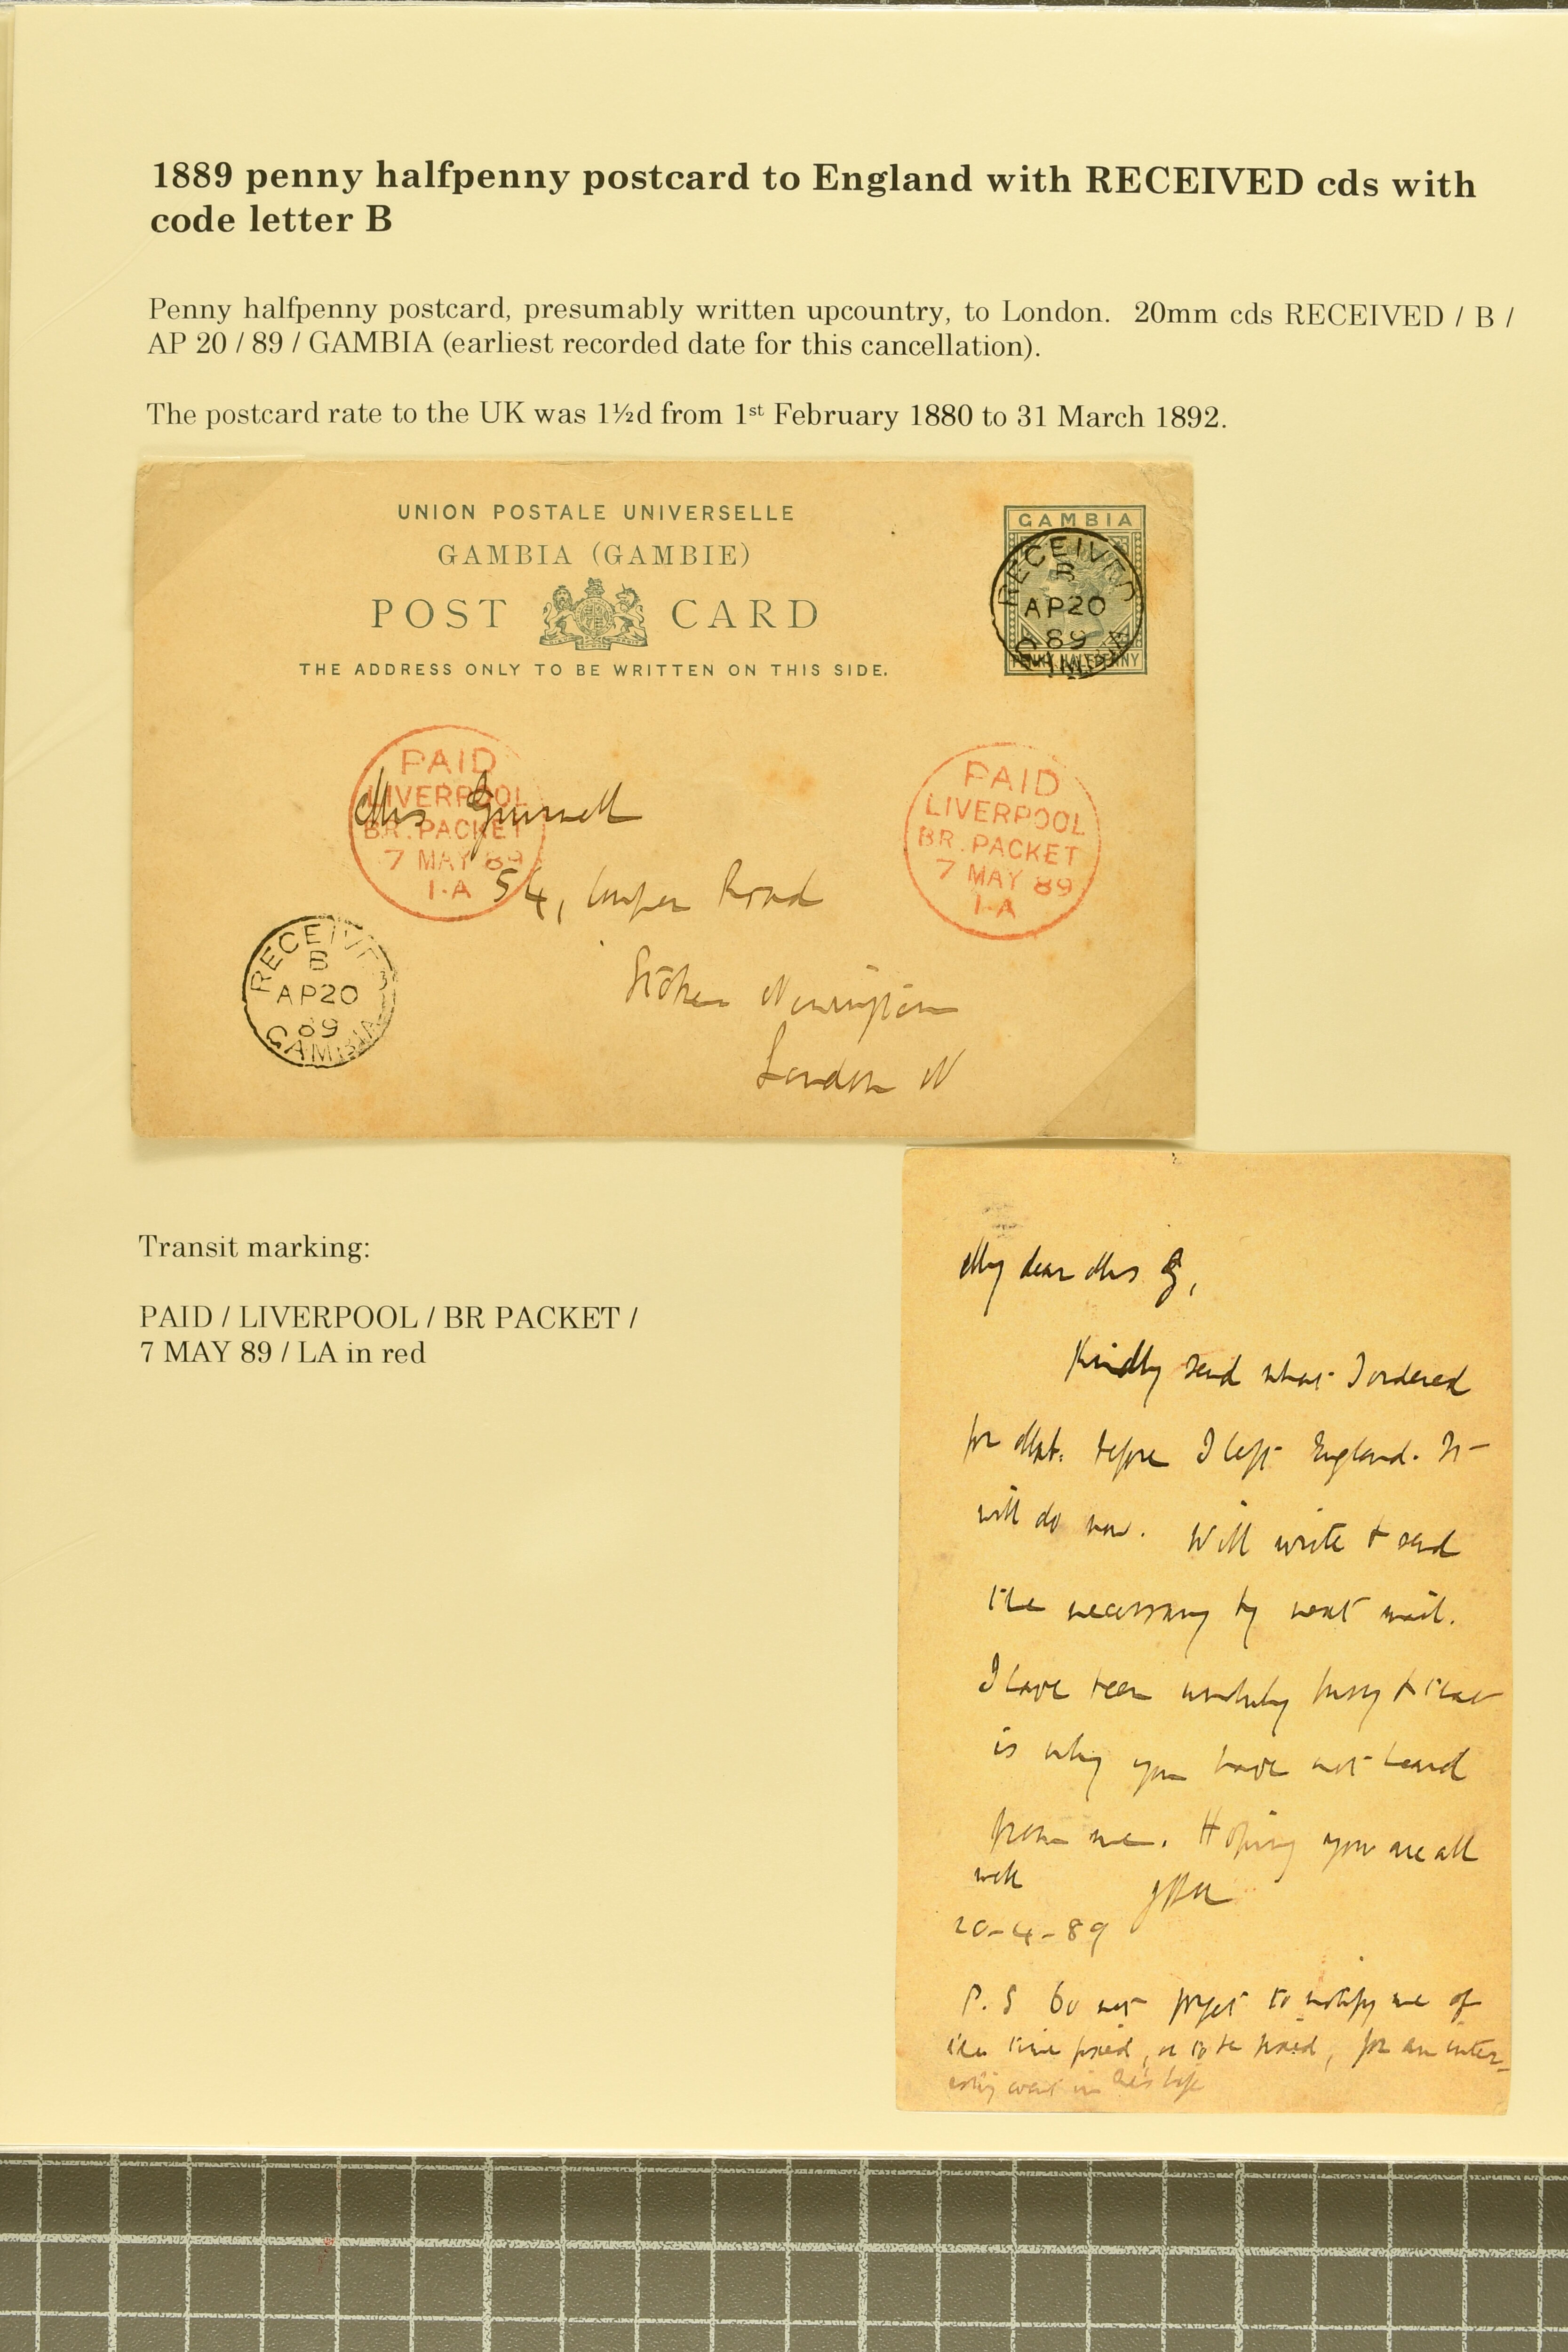 1889 penny halfpenny postcard to England with RECEIVED cds with
code letter B
Penny halfpenny postcard, presumably written upcountry, to London. 20mm cds RECEIVED / B /
AP 20 / 89 / GAMBIA (earliest recorded date for this cancellation).
The postcard rate to the UK was 1½d from 1st February 1880 to 31 March 1892.
UNION POSTALE UNIVERSELLE
GAMBIA (GAMBIE)
POST CARD
THE ADDRESS ONLY TO BE WRITTEN ON THIS SIDE.
GAMBIA
PENNY HALFPENNY
RECEIVED
B
AP20
89
GAMBIA
PAID
LIVERPOOL
BR. PACKET
7 MAY 89
1·A
PAID
LIVERPOOL
BR. PACKET
7 MAY 89
1·A
Mrs
54, Road
Stoke Newington
London N
RECEIVED
B
AP20
89
GAMBIA
Transit marking:
PAID / LIVERPOOL / BR PACKET /
7 MAY 89 / LA in red
My dear Mrs G,
Kindly send what I ordered
for before I left England. It
will do now. Will write & send
the necessary by next mail.
I have been busy & that
is why you have not heard
from me. Hoping you are all
well
20-4-89
P.S Do not forget to notify me of
the time fixed, or to be fixed, for an inter-
esting event in life